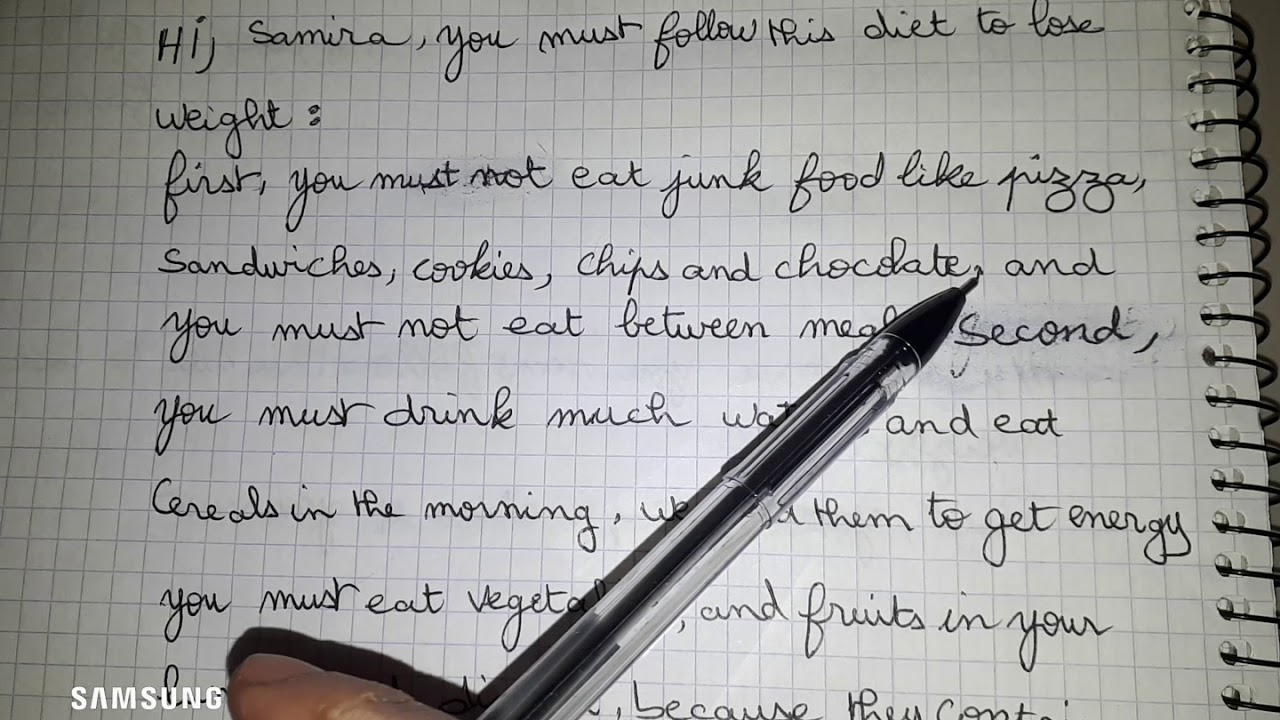 Hi, Samira, you must follow this diet to lose
weight :
first, you must not eat junk food like pizza,
Sandwiches, cookies, chips and chocolate, and
you must not eat between Second,
you must drink much and eat
Cereals in the morning, them to get energy
you must eat , and fruits in your
, because they
SAMSUNG